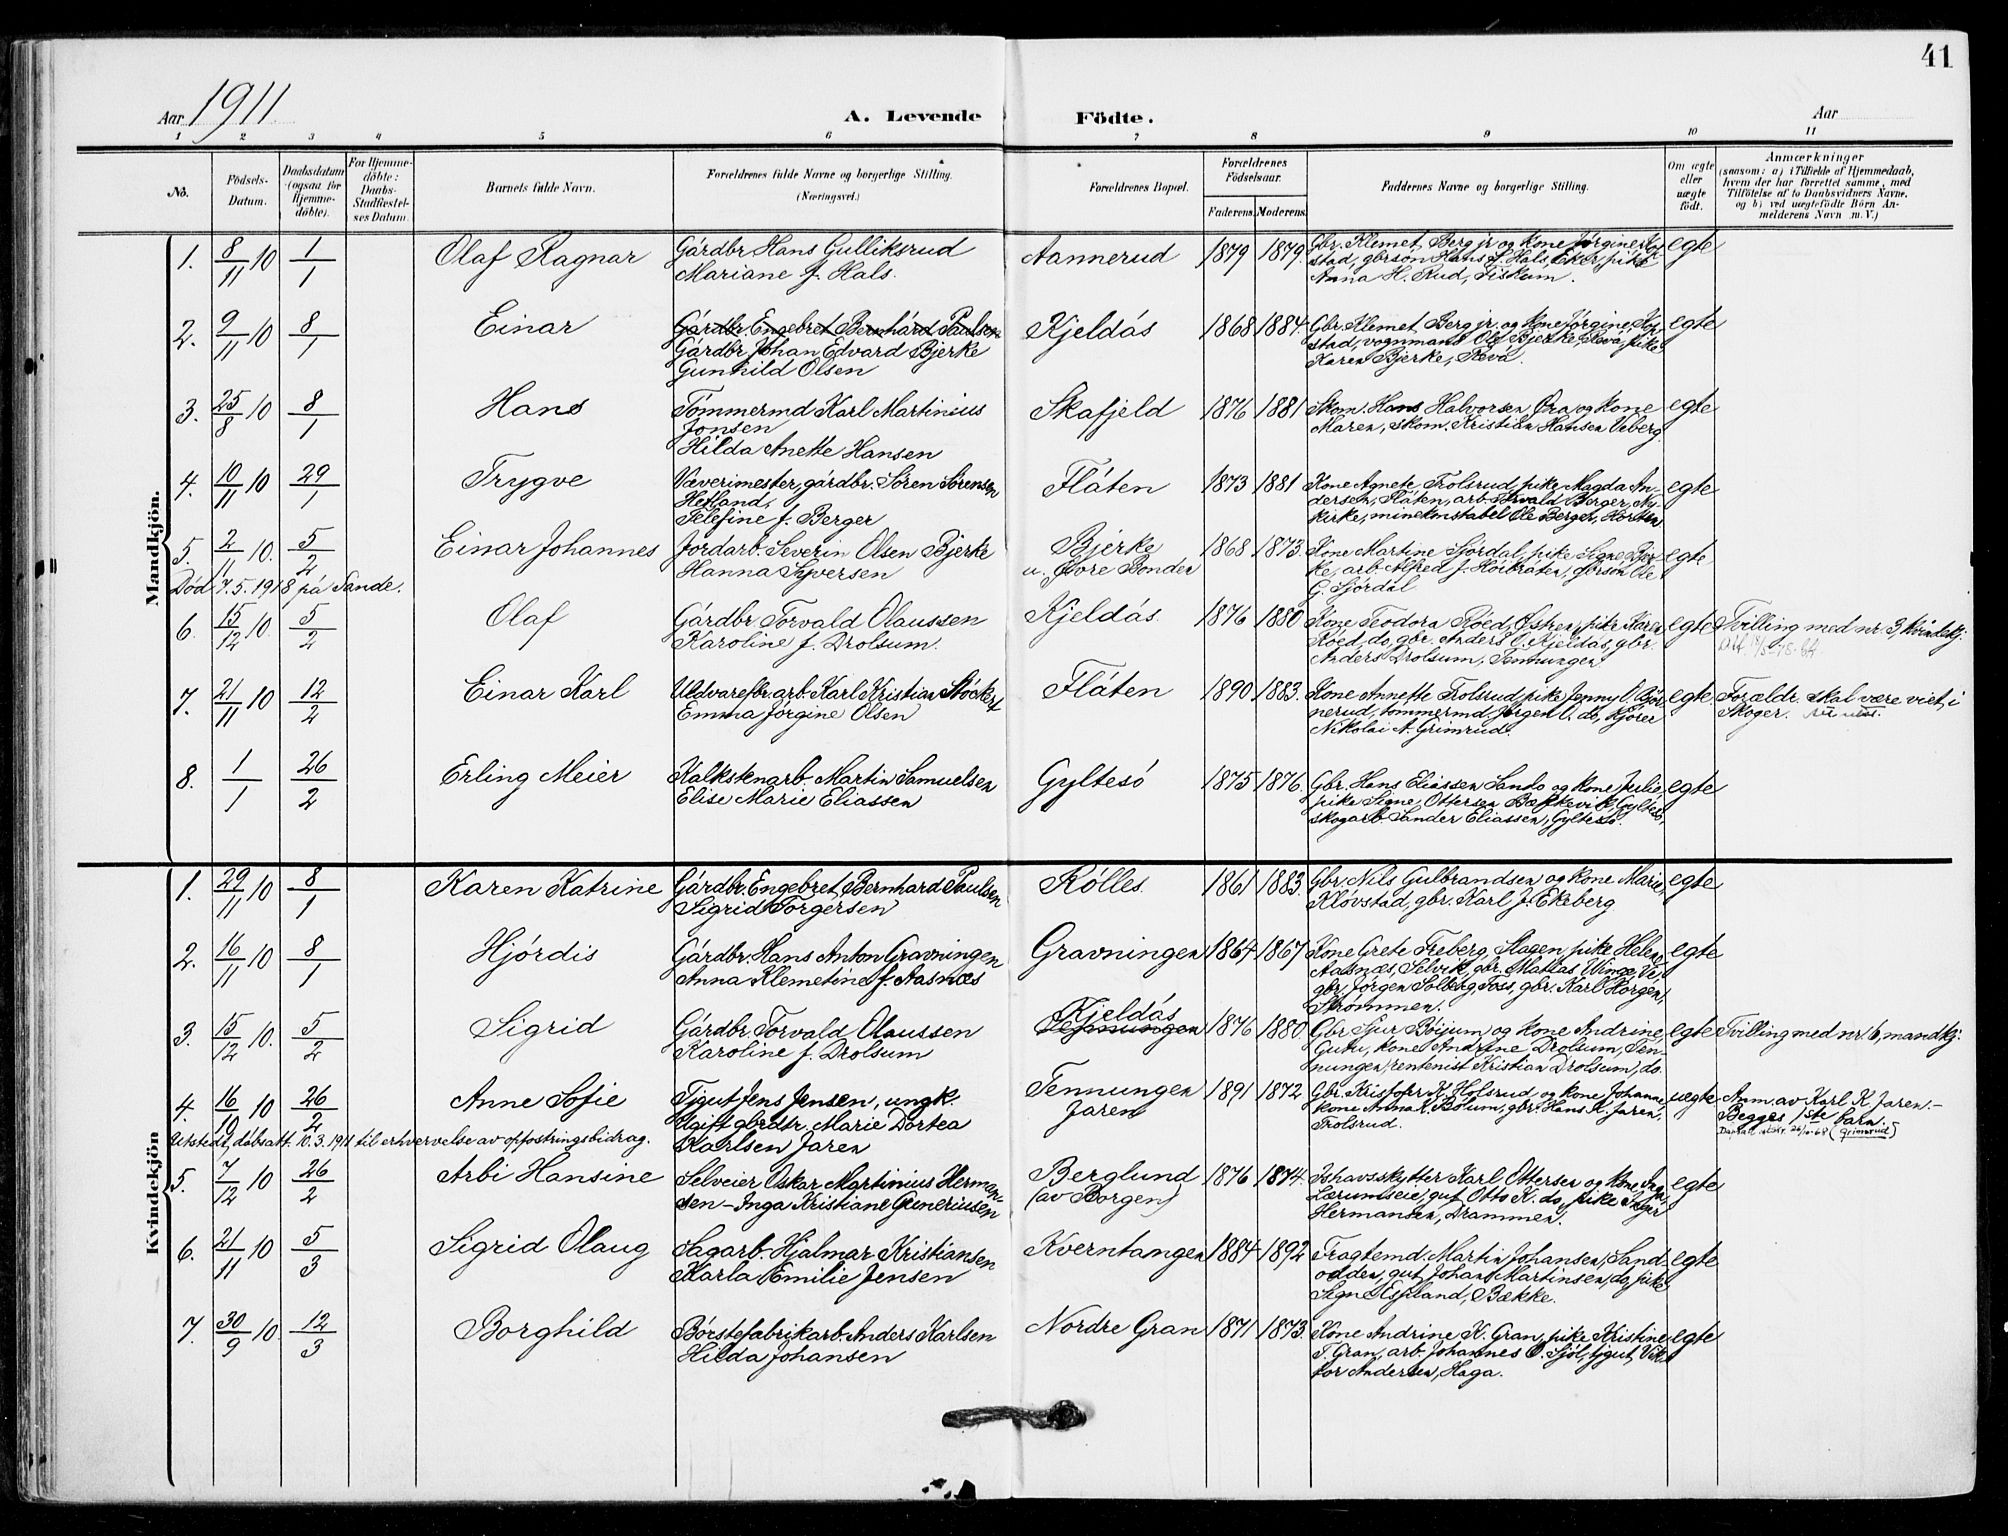 41
Aar 1911
A. Levende Födte.
Aar
1 2 3 4 5 6 7 8 9 10 11
No.
Födsels-
Datum.
Daabsdatum
(ogsaa for
Hjemme-
döbte).
For Hjemme-
döbte:
Daabs-
Stadfæstel-
ses Datum.
Barnets fulde Navn.
Forældrenes fulde Navne og borgerlige Stilling.
(Næringsvei.)
Forældrenes Bopæl.
Forældrenes
Födselsaar.
Faderens. Moderens.
Faddernes Navne og borgerlige Stilling.
Om ægte
eller
uægte
födt.
Anmærkninger
(saasom: a) i Tilfælde af Hjemmedaab,
hvem der har forrettet samme, med
Tilföielse af to Daabsvidners Navne,
og b) ved uægtefödte Börn An-
melderens Navn m. V.)
Mandkjön.
1. 8/11 10 1/1 Olaf Ragnar
Gårdbr. Hans Gulliksrud
Mariane f. Hals.
Aannerud 1879 1879.
Gbr. Klemet Berg jr. og kone Jørgine, Kok-
stad, gbrsøn Hans J. Hals, Eker, pike
Anna H. Rud, Fiskum.
egte
2. 9/11 10 8/1 Einar
Gårdbr. Engebret Bernhård Paulsen
Gårdbr. Johan Edvard Bjerke
Gunhild Olsen
Kjeldås 1868 1884.
Gbr. Klemet Berg jr. og kone Jørgine, Kok-
stad, vognmand Ole Bjerke, Revå, pike
Karen Bjerke, Revå.
egte
3. 25/8 10 8/1 Hans
Tømmermd Karl Martinius
Jonsen
Hilda Anette Hansen
Skafjeld 1876 1881
Skom. Hans Halvorsen Øra og kone
Maren, skom. Kristian Hansen Veberg.
egte
4. 10/11 10 29/1 Trygve
Væverimester, gårdbr. Søren Sørensen
Hetland,
Telefine f. Berger
Flåten 1873 1881
Kone Agnete Trolsrud, pike Magda An-
dersen, Flåten, arb. Torvald Berger, Ny-
kirke, minekonstabel Ole Berger, Horten
egte
5. 2/11 10. 5/2 Einar Johannes
Jordarb. Severin Olsen Bjerke
Hanna Syversen
Bjerke
u. Øvre Bonden 1868 1873.
Kone Martine Sjørdal, pike Signe Bjer-
ke, arb. Alfred J. Høibråten, gbrsøn Ole
G. Sjørdal
egte
Död 7.5.1918 på Sande.
6. 15/12 10. 5/2 Olaf
Gårdbr. Torvald Olaussen
Karoline f. Drolsum.
Kjeldås. 1876 1880
Kone Teodora Røed, Østren, pike Karen
Røed, do, gbr. Anders O. Kjeldås, gbr.
Anders Drolsum, Tennungen.
egte Tvilling med nr. 3 kvindekj.
7. 21/11 10 12/2 Einar Karl
Uldvarefbr. arb. Karl Kristian Støckert
Emma Jørgine Olsen
Flåten 1890 1883.
Kone Annette Trolsrud, pike Jenny O. Bjør-
nerud, tømmermd. Jørgen O. do, kjører
Nikolai A. Grimsrud.
egte. Forældr. skal være viet, i
Skoger.
8. 1/1 26/2 Erling Meier
Kalkstenarb. Martin Samuelsen
Elise Marie Eliassen
Gyltesö 1875 1876.
Gbr. Hans Eliassen Sando og kone Julie,
pike Signe Ottersen Bækkevik, Gyltesö,
skogarb. Sander Eliassen, Gyltesö.
egte
Kvindekjön
1. 29/11 10 8/1 Karen Katrine
Gårdbr. Engebret Bernhard Paulsen
Sigrid Torgersen
Rólles. 1861 1883.
Gbr. Nils Gulbrandsen og kone Marie,
Kløvstad, gbr. Karl J. Ekeberg
egte
2. 16/11 10 8/1 Hjórdis
Gårdbr. Hans Anton Gravningen
Anna Klemetine f. Aasnæs
Gravningen 1864 1867
Kone Grete Freberg, Slagen, pike Helene
Aasnæs, Selvik, gbr. Matias Vinge, Ve,
gbr. Jørgen Solberg, Foss, gbr. Karl Horgen,
Strømmen.
egte
3. 15/12 10. 5/2 Sigrid
Gårdbr. Torvald Olaussen
Karoline f. Drolsum
Kjeldås
Tennungen 1876 1880.
Gbr. Sjur Bøijum og kone Andrine,
Gutu, kone Andrine Drolsum, Ten-
nungen, rentenist Kristian Drolsum, do.
egte Tvilling med nr. 6, mandkj.
4. 16/10 10 26/2 Anne Sofie
Tjgut Jens Jensen, ungk.
Ugift gbrdtr. Marie Dortea
Karlsen Jaren
Tennungen
Jaren 1891 1872
Gbr. Kristofer K. Holsrud og kone Johanne,
kone Anna K. Bøium, gbr. Hans K. Jaren,
Trolsrud.
uegte Anm. av Karl K. Jaren.-
Begges 1ste barn.
(Grimsrud)
Utstedt dåbsatt. 10.3.1911 til erhvervelse av opfostringsbidrag.
5. 7/12 10 26/2 Arbi Hansine
Selveier Oskar Martinius Herman-
sen - Inga Kristiane Guneriusen
Berglund
(av Borgen) 1876 1874.
Ishavsskytter Karl Ottersen og kone Inga,
Lærumseie, gut Otto K. do, pike Inger
Hermansen, Drammen.
egte
6. 21/11 10 5/3 Sigrid Olaug
Sagarb. Hjalmar Kristiansen
Karla Emilie Jensen
Kverntangen 1884 1892
Fragtemd. Martin Johansen, Sand-
odden, gut Johan Martinsen, do, pike
Signe Espeland, Bække.
egte
7. 30/9 10 12/3 Borghild
Børstefabrikarb. Anders Karlsen
Hilda Johansen
Nordre Gran 1871 1873.
Kone Andrine K. Gran, pike Kristine
T. Gran, arb. Johannes O. Sjøl, tjgut Vik-
tor Andersen, Haga.
egte